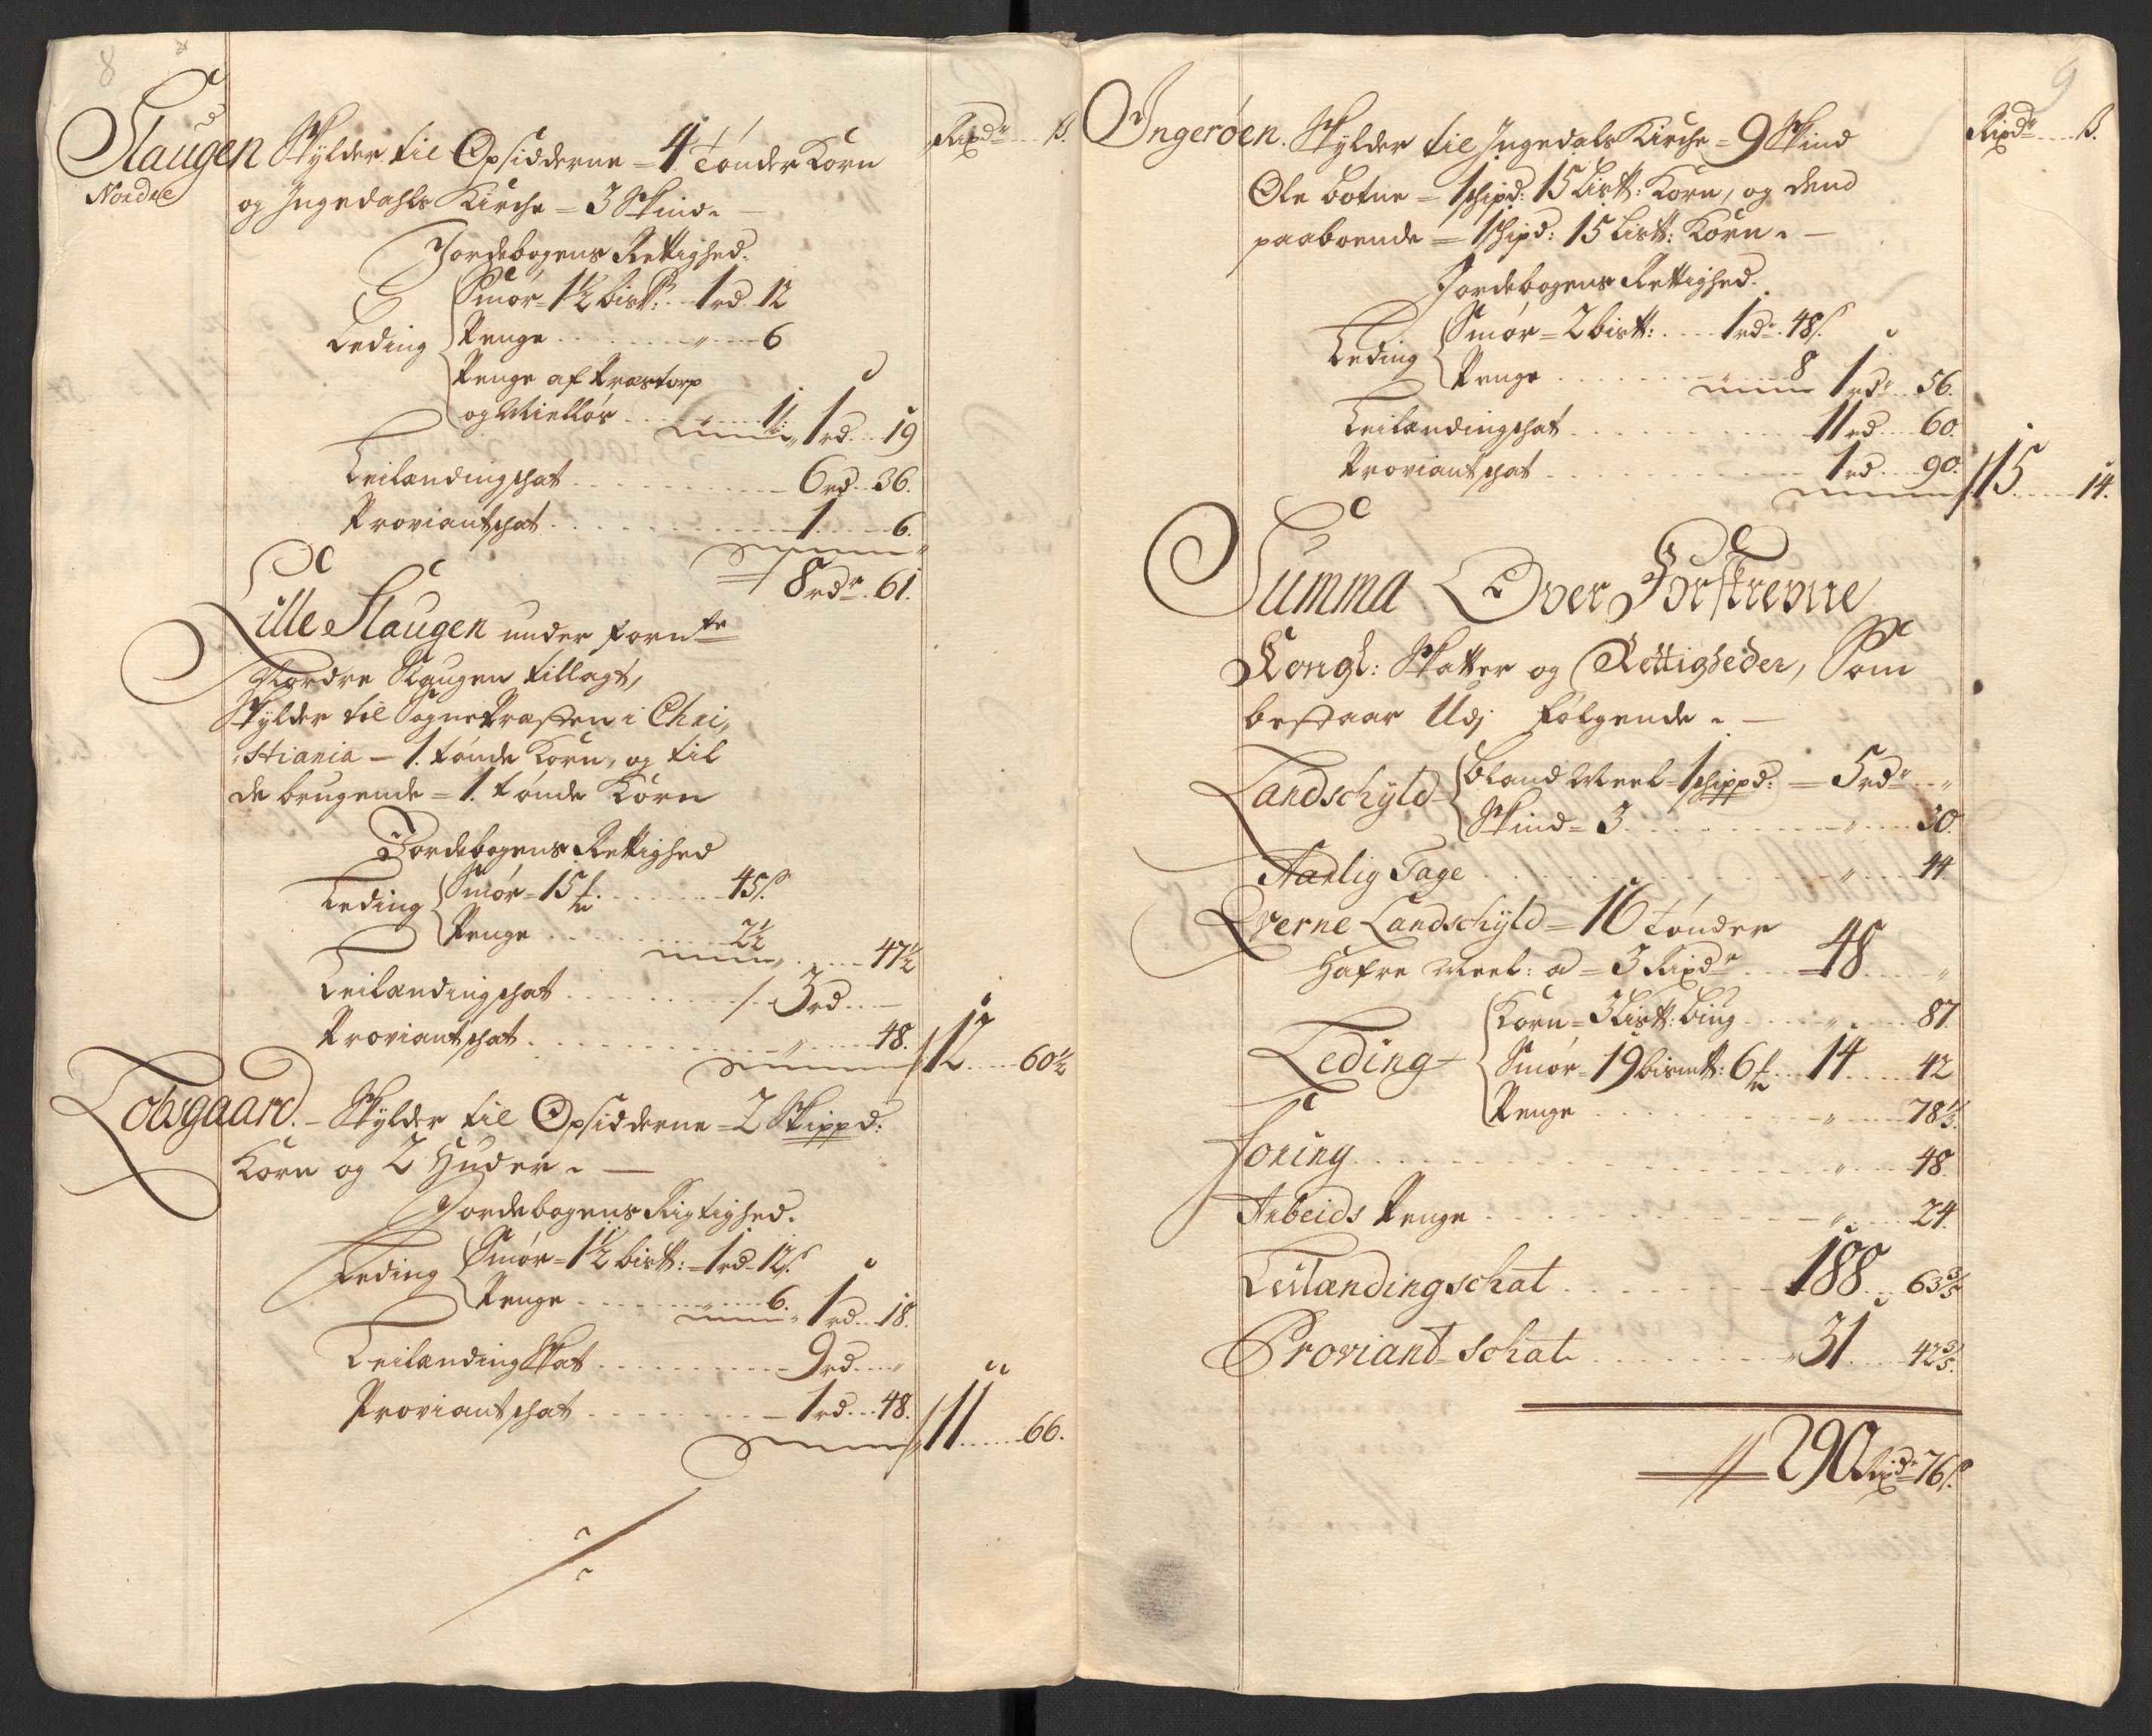 8
Rixdr ß.
Slaugen Skylder til Opsidderne = 4 Tønder Korn
Nordre
og Ingedahls Kirche = 3 Skind.
Jordebogens Rettighed.
Leding
Smør = 1½ bis℔: 1 rd. 12
Penge 6
Penge af Præstorp
og Miølløs 1. 1 rd 19
Leilændingschat 6 rd 36.
Proviantschat 1 6.
8 rdr. 61.
Lille Slaugen under fornte
Nordre Slaugen tillagt,
Skylder til Sognepræsten i Chri,
stiania = 1. tønde Korn, og til
de brugende = 1. tønde Korn
Jordebogens Rettighed
Leding
Smør = 15 45 ß
Penge 2½
47½
Leilændingschat 3 rd
Proviantschat 48.
12 60½
Lobsgaard. Skylder til Opsidderne = 2 Skippd:
Korn og 2 Huder.
Jordebogens Rigtighed.
Leding
Smør = 1½ bis℔: 1 rd 12 ß
Penge 6. 1 rd. 18.
Leilænding Skat 9 rd
Proviantschat 1 rd 48.
11 66.
9
Rixdr ß.
Ingerøen. Skylder til Ingedals Kirche = 9 Skind
Ole botne = 1 schipd: 15 Lis℔: Korn, og dend
paaboende = 1 schipd: 15 Lis℔: Korn.
Jordebogens Rettighed.
Leding
Smør = 2 bis℔: 1 rdr 48 ß
Penge 8 1 rdr 56.
Leilændingschat 11 rd 60.
Proviantschat 1 rd 90.
15 14.
Summa Over Forskrevne
Kongl: Skatter og Rettigheder, Som
bestaar Udj følgende.
Landschyld
Bland Meel = 1 schippd: = 5 rdr
Skind = 3 30.
Aarlig Tage 44
Qverne Landschyld = 16 tønder
Hafre Meel: a = 3 Rixdr 48
Leding
Korn = 3 Lis℔: 87.
Smør = 19 bism℔: 6 14 42
Penge 78⅓
Foring 48.
Arbeids Penge 24.
Leilændingschat 188 63⅗
Proviant-schat 31 42⅗.
290 Rixdr 76 ß